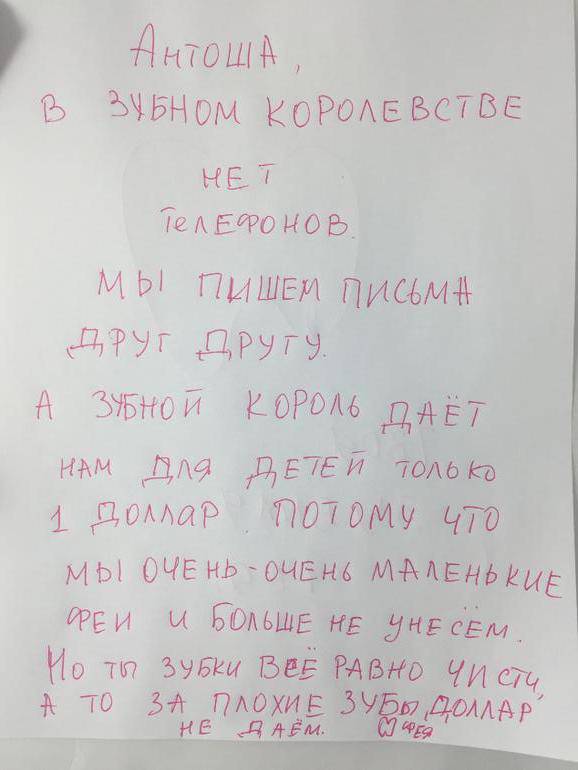 Антоша,
В ЗУБНОМ КОРОЛЕВСТВЕ
НЕТ
ТелЕФОНОВ.
МЫ ПИШЕМ ПИСЬМА
ДРУГ ДРУГУ.
А ЗУБНОЙ КОРОЛЬ ДАЁТ
НАМ ДЛЯ ДЕТЕЙ ТОЛЬКО
1 ДОЛЛАР ПОТОМУ ЧТО
МЫ ОЧЕНЬ-ОЧЕНЬ МАЛЕНЬКИЕ
ФЕИ И БОЛЬШЕ НЕ УНЕСЁМ.
НО ТЫ ЗУБКИ ВСЁ РАВНО ЧИСТИ,
А ТО ЗА ПЛОХИЕ ЗУБЫ ДОЛЛАР
НЕ ДАЁМ. ФЕЯ